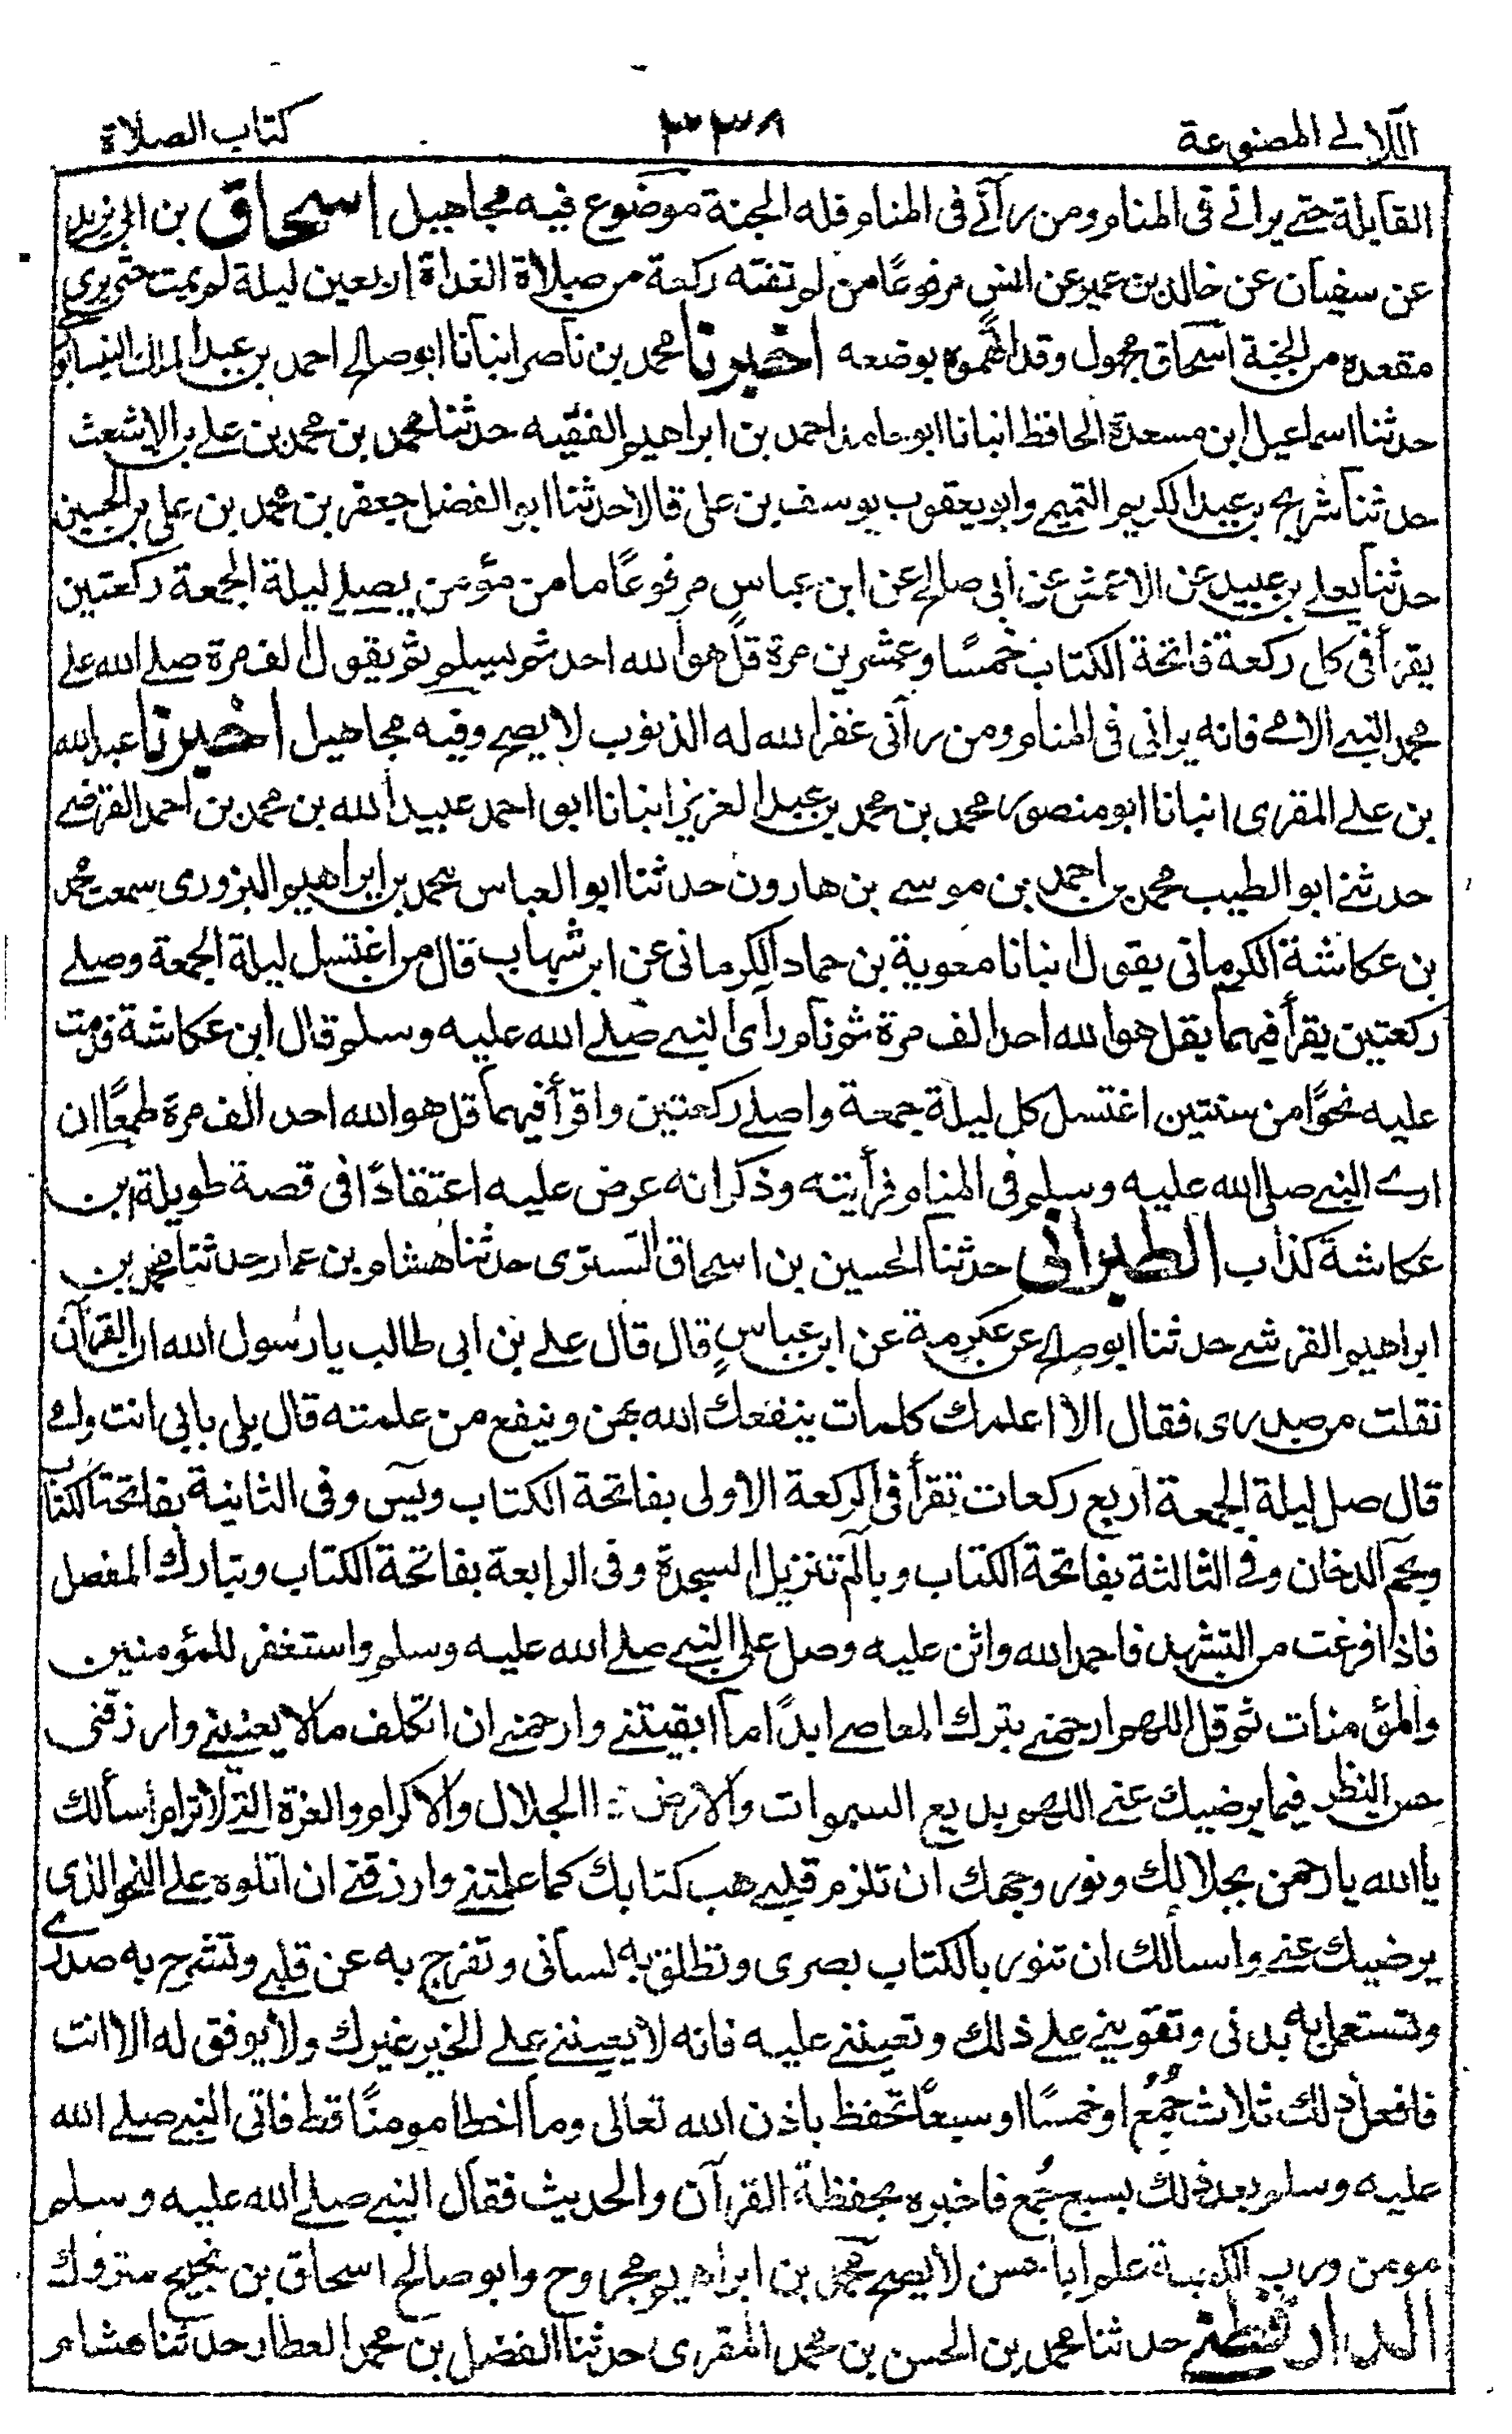 اللآلى المصنوعة ٣٣٨ كتاب الصلاة
القابلة حتے يرانے فى المنام ومن رآنے فى المنام فله الجنة موضوع فيه مجاهيل اسحاق بن ابى يزيد
عن سفيان عن خالد بن عمير عن انسٍ مرفوعًا من لم تفته ركعة من صلاة الغداة اربعين ليلة لم يمت حتى يرى
مقعده من الجنة اسحاق مجهول وقد اتهموه بوضعه اخبرنا محمد بن ناصر انبانا ابو صالح احمد بن عبد الملك النيسابورى
حدثنا اسماعيل ابن مسعدة الحافظ انبانا ابو حامد احمد بن ابراهيم الفقيه حدثنا محمد بن محمد بن علے بن الاشعث
حدثنا شريح بن عبد الكريم التميمے وابو يعقوب يوسف بن على قالا حدثنا ابو الفضل جعفر بن محمد بن على بن الحسين
حدثنا يعلے بن عبيد عن الاعمش عن أبى صالح عن ابن عباسٍ مرفوعًا ما من مؤمن يصلے ليلة الجمعة ركعتين
يقرأ فى كل ركعة فاتحة الكتاب خمسًا وعشرين مرة قل هو الله احد ثم يسلم ثم يقول الف مرة صلے الله على
محمد النبے الامے فانه يرانى فى المنام ومن رآنى غفر الله له الذنوب لا يصح وفيه مجاهيل اخبرنا عبد الله
بن علے المقرى انبانا ابو منصور محمد بن محمد بن عبد العزيز انبانا ابو احمد عبيد الله بن محمد بن احمد الفرضے
حدثنے ابو الطيب محمد بن احمد بن موسے بن هارون حدثنا ابو العباس محمد بن ابراهيم البزورى سمعت محمد
بن عكاشة الكرمانى يقول انبانا معوية بن حماد الكرمانى عن ابن شهاب قال من اغتسل ليلة الجمعة وصلے
ركعتين يقرأ فيهما بقل هو الله احد الف مرة ثم نام رأى النبے صلے الله عليه وسلم قال ابن عكاشة قدمت
عليه نحوًا من سنتين اغتسل كل ليلة جمعة واصلے ركعتين واقرأ فيهما قل هو الله احد الف مرة طمعًا ان
ارے النبے صلى الله عليه وسلم فى المنام فرأيته وذكر انه عرض عليه اعتقادًا فى قصة طويلة ابن
عكاشة كذاب الطبرانى حدثنا الحسين بن اسحاق التسترى حدثنا هشام بن عمار حدثنا محمد بن
ابراهيم القرشے حدثنا ابو صالح عن عكرمة عن ابن عباسٍ قال قال علے بن ابى طالب يا رسول الله ان القرآن
نفلت من صدرى فقال الا اعلمك كلمات ينفعك الله بهن وينفع من علمته قال بلى بابى انت وامے
قال صل ليلة الجمعة اربع ركعات تقرأ فى الركعة الاولى بفاتحة الكتاب ويٰسٓ وفى الثانية بفاتحة الكتاب
وبحم الدخان وفے الثالثة بفاتحة الكتاب وبالم تنزيل السجدة وفى الرابعة بفاتحة الكتاب وتبارك المفصل
فاذا فرغت من التشهد فاحمد الله واثن عليه وصل على النبے صلے الله عليه وسلم واستغفر للمؤمنين
والمؤمنات ثم قل اللهم ارحمنے بترك المعاصے ابدًا ما ابقيتنے وارحمنے ان اتكلف مالا يعنينے وارزقنى
حسن النظر فيما يرضيك عنے اللهم بديع السموات والارض ذا الجلال والاكرام والعزة التے لا ترام أسألك
يا الله يا رحمن بجلالك ونور وجهك ان تلزم قلبے هب كتابك كما علمتنے وارزقنے ان اتلوه علے النحو الذى
يرضيك عنے واسألك ان تنور بالكتاب بصرى وتطلق به لسانى وتفرج به عن قلبے وتشرح به صدرے
وتستعمل به بدنى وتقوينے على ذلك وتعيننے عليه فانه لا يعيننے علے الخير غيرك ولا يوفق له الا انت
فافعل ذلك ثلاث جُمُع او خمسًا او سبعًا تحفظ باذن الله تعالى وما اخطا مومنًا قط فاتى النبے صلے الله
عليه وسلم بعد ذلك بسبع جُمع فاخبره بحفظه القرآن والحديث فقال النبے صلے الله عليه وسلم
مومن ورب الكعبة علم ابا حسن لا يصح محمد بن ابراهيم مجروح وابو صالح اسحاق بن نجيح متروك
الدارقطنے حدثنا محمد بن الحسن بن محمد المقرى حدثنا الفضل بن محمد العطار حدثنا هشام